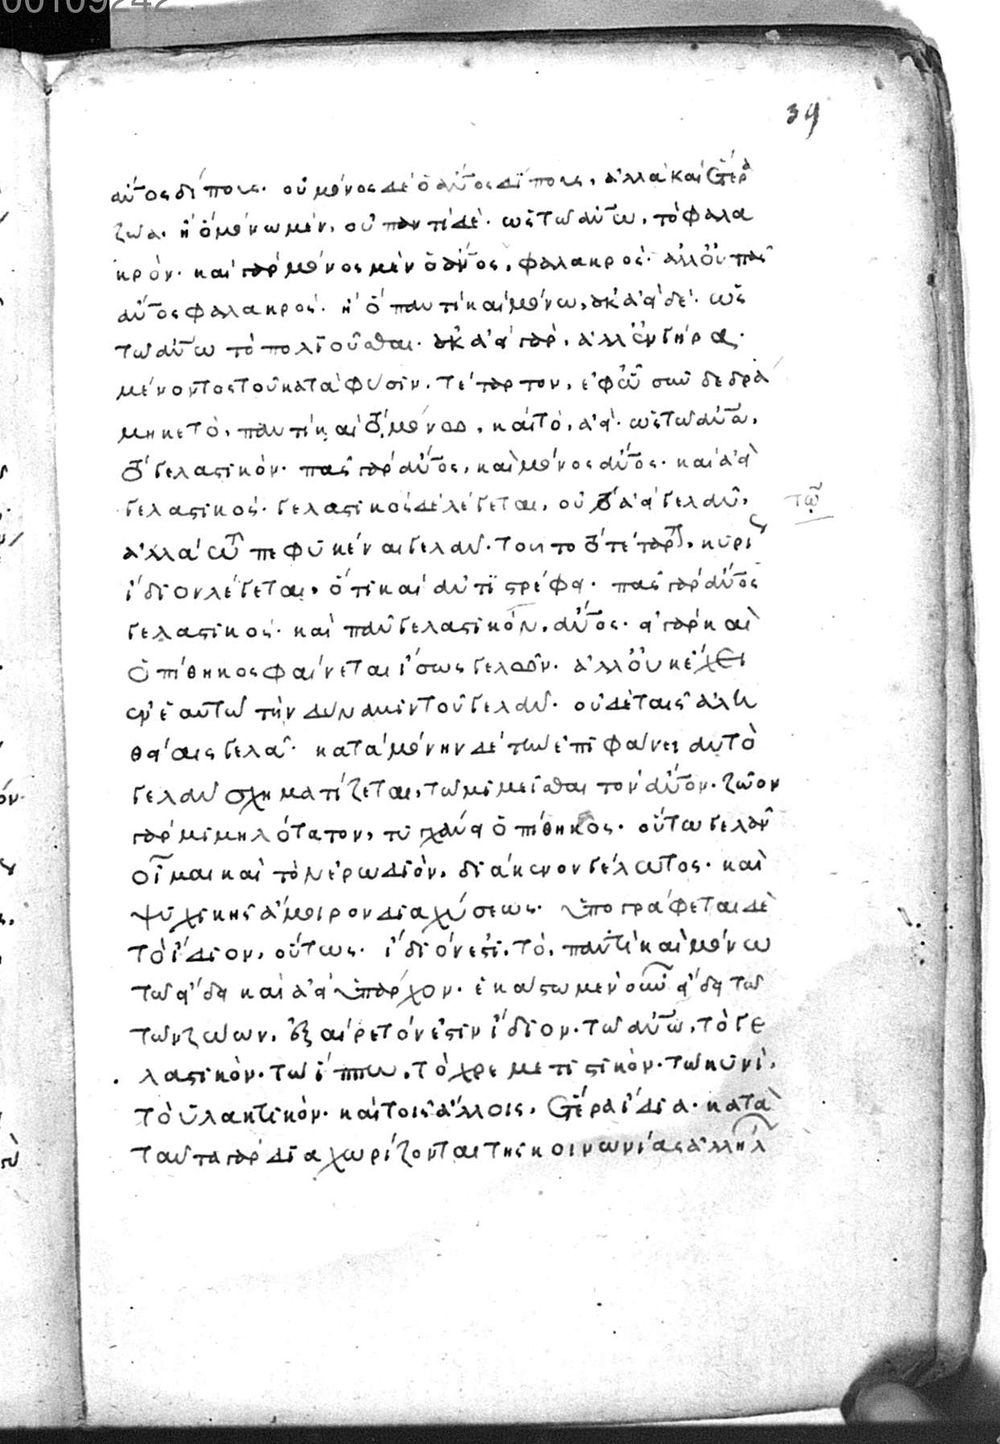 00109242
39
ἄνος δίπους. οὐ μόνος δὲ ὁ ἄνος δίπους, ἀλλὰ καὶ ἕτερα
ζῶα. ἢ ὃ μόνω μὲν, οὐ παντὶ δέ. ὡς τῶ ἀνω, τὸ φαλα
κρόν. καὶ γὰρ μόνος μὲν ὁ ἄνος, φαλακρός. ἀλλ οὐ πᾶς
ἄνος φαλακρός. ἢ ὃ παντὶ καὶ μόνω, οὐκ ἀεὶ δέ. ὡς
τῶ ἀνω τὸ πολιοῦσθαι. οὐκ ἀεὶ γὰρ, ἀλλ ἐν γήρᾳ.
μένοντος τοῦ κατὰ φύσιν. τέταρτον, ἐφ ὧ συνδεδρά
μηκε τὸ, παντὶ καὶ τὸ μόνω, καὶ τὸ, ἀεί. ὡς τῶ ἀνω,
τὸ γελαστικόν. πᾶς γὰρ ἄνος, καὶ μόνος ἄνος. καὶ ἀεὶ
γελαστικός. γελαστικὸς δὲ λέγεται, οὐ τὸ ἀεὶ γελᾶν,
τῶ
ἀλλὰ τῶ πεφυκέναι γελᾶν. τοῦτο τὸ τέταρτον, κυρί
ἴδιον λέγεται, ὅτι καὶ ἀντιστρέφει. πᾶς γὰρ ἄνος
γελαστικός. καὶ πᾶν γελαστικόν, ἄνος. εἰ γὰρ καὶ
ὁ πίθηκος φαίνεται ἴσως γελῶν. ἀλλ οὐκ ἔχει
ἐν ἑαυτῶ τὴν δύναμιν τοῦ γελᾶν. οὐδὲ ταῖς ἀλη
θείαις γελᾶ. κατὰ μόνην δὲ τὴν ἐπιφάνειαν τὸ
γελᾶν σχηματίζεται, τῶ μιμεῖσθαι τὸν ἄνον. ζῶον
γὰρ μιμηλότατον, τυγχάνει ὁ πίθηκος. οὕτω γελᾶν
οἶμαι καὶ τὸν ἐρωδιόν, διάκενον γέλωτος. καὶ
ψυχικῆς ἄμοιρον διαχύσεως. ὑπογράφεται δὲ
τὸ ἴδιον, οὕτως. ἴδιόν ἐστι, τὸ, παντὶ καὶ μόνω
τῶ εἴδει καὶ ἀεὶ ὑπάρχον. ἑκάστω μὲν οὖν εἴδει τῶ
τῶν ζώων, ἐξαίρετόν ἐστιν ἴδιον. τῶ ἀνω, τὸ γε
λαστικόν. τῶ ἵππω, τὸ χρεμετιστικόν. τῶ κυνὶ,
τὸ ὑλακτικόν. καὶ τοῖς ἄλλοις, ἕτερα ἴδια. κατὰ
ταῦτα γὰρ διαχωρίζονται τῆς κοινωνίας ἀλλήλ